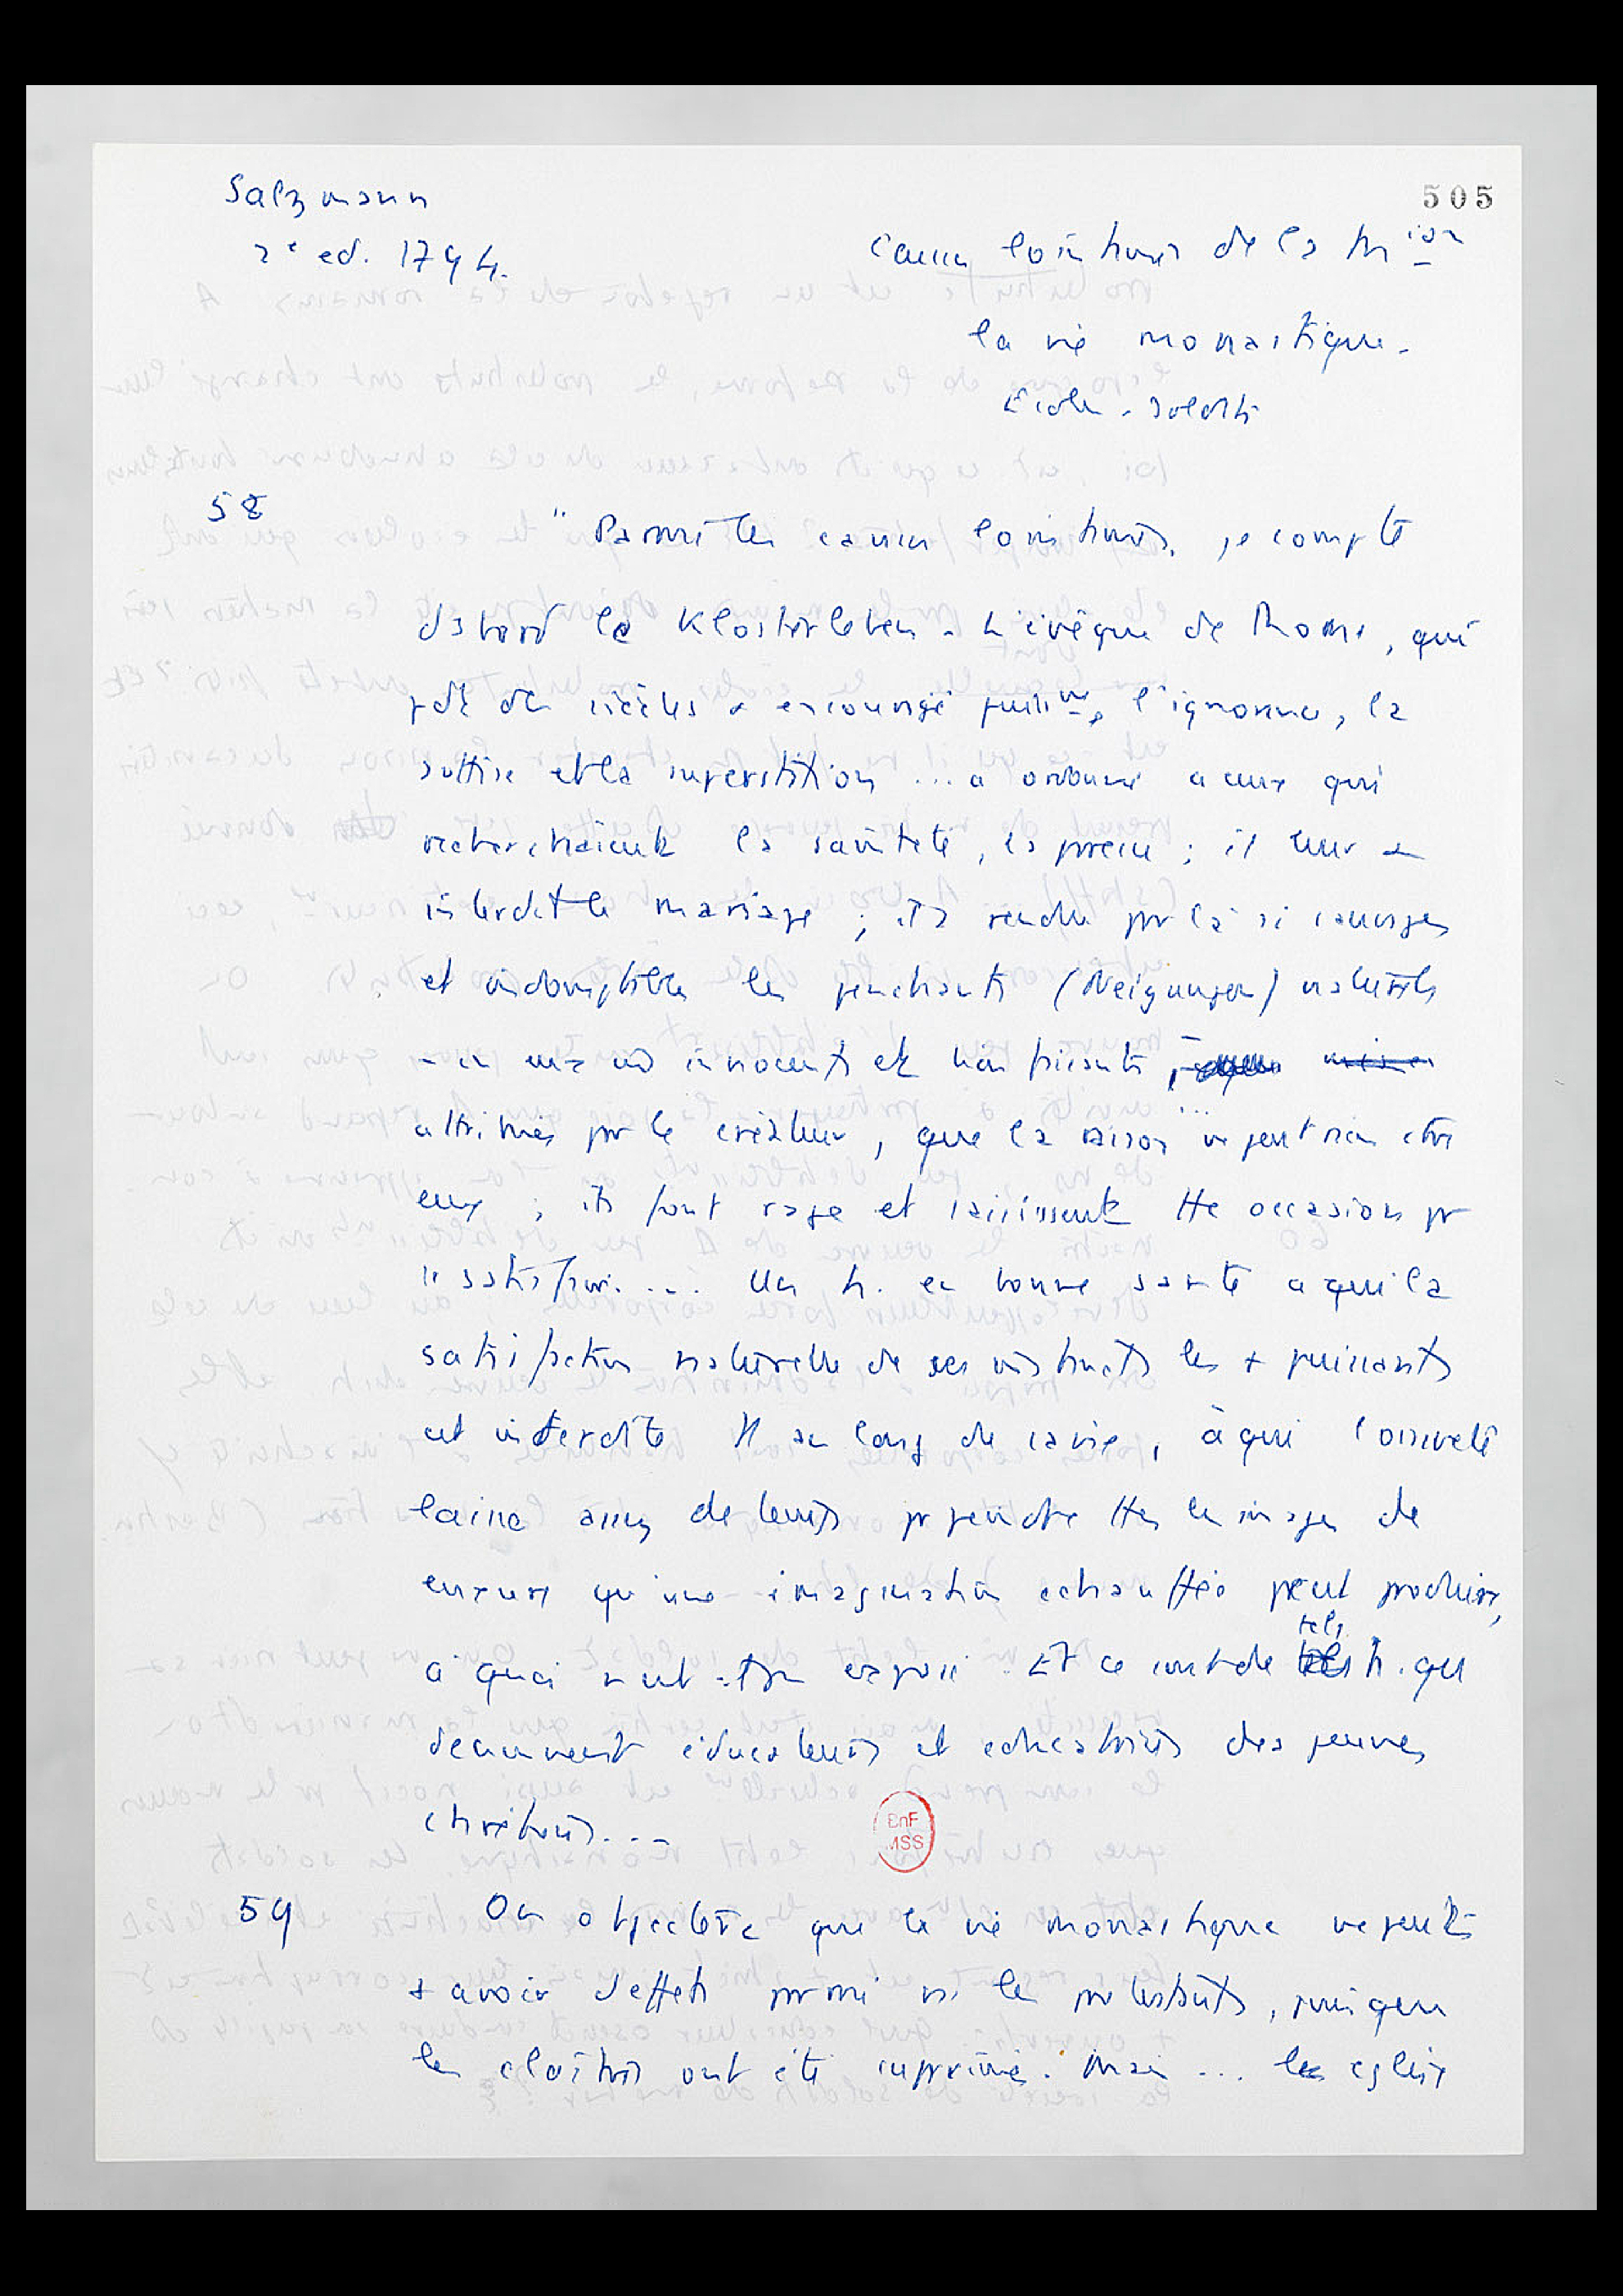 Salzmann
505
2e ed. 1794.
causes lointaines de la Mion
la vie monastique.
Ecole - soldats
58
"Parmi les causes lointaines, je compte
d'abord le Klosterleben. L'évêque de Rome, qui
pdt des siècles a encouragé l'ignorance, la
sottise et la superstition ... a ordonné a ceux qui
recherchaient la sainteté, la ; il leur a
interdit le mariage ; il a rendu pr là si sauvages
et indomptables les penchants (Neigungen) naturels
- en eux innocents et bienfaisants,
attribués pr le créateur, que la raison ... ne peut rien ctre
eux ; ils font rage et saisissent tte occasion pr
se satisfaire.... Un h. en bonne santé a qui la
satisfaction naturelle de ses instincts les + puissants
est interdite tt au long de sa vie, à qui l'oisiveté
laisse assez de temps pr peindre ttes les images de
luxure qu'une imagination echauffée peut produire,
à quoi n'est-il pas exposé. Et ce sont de tels h. qui
deviennent éducateurs et educatrices des jeunes
chrétiens...
BnF
MSS
59
On objectera que la vie monastique ne peut
+ avoir d'effets parmi ns les protestants, puisque
les cloîtres ont été suprimés. Mais ... les eglises